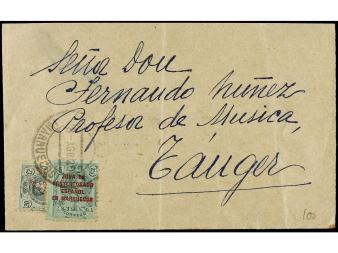 Señor Don
Fernando Núñez
Profesor de Musica,
Tánger
MARRUECOS
ZONA DE
PROTECTORADO
ESPAÑOL
EN MARRUECOS
100